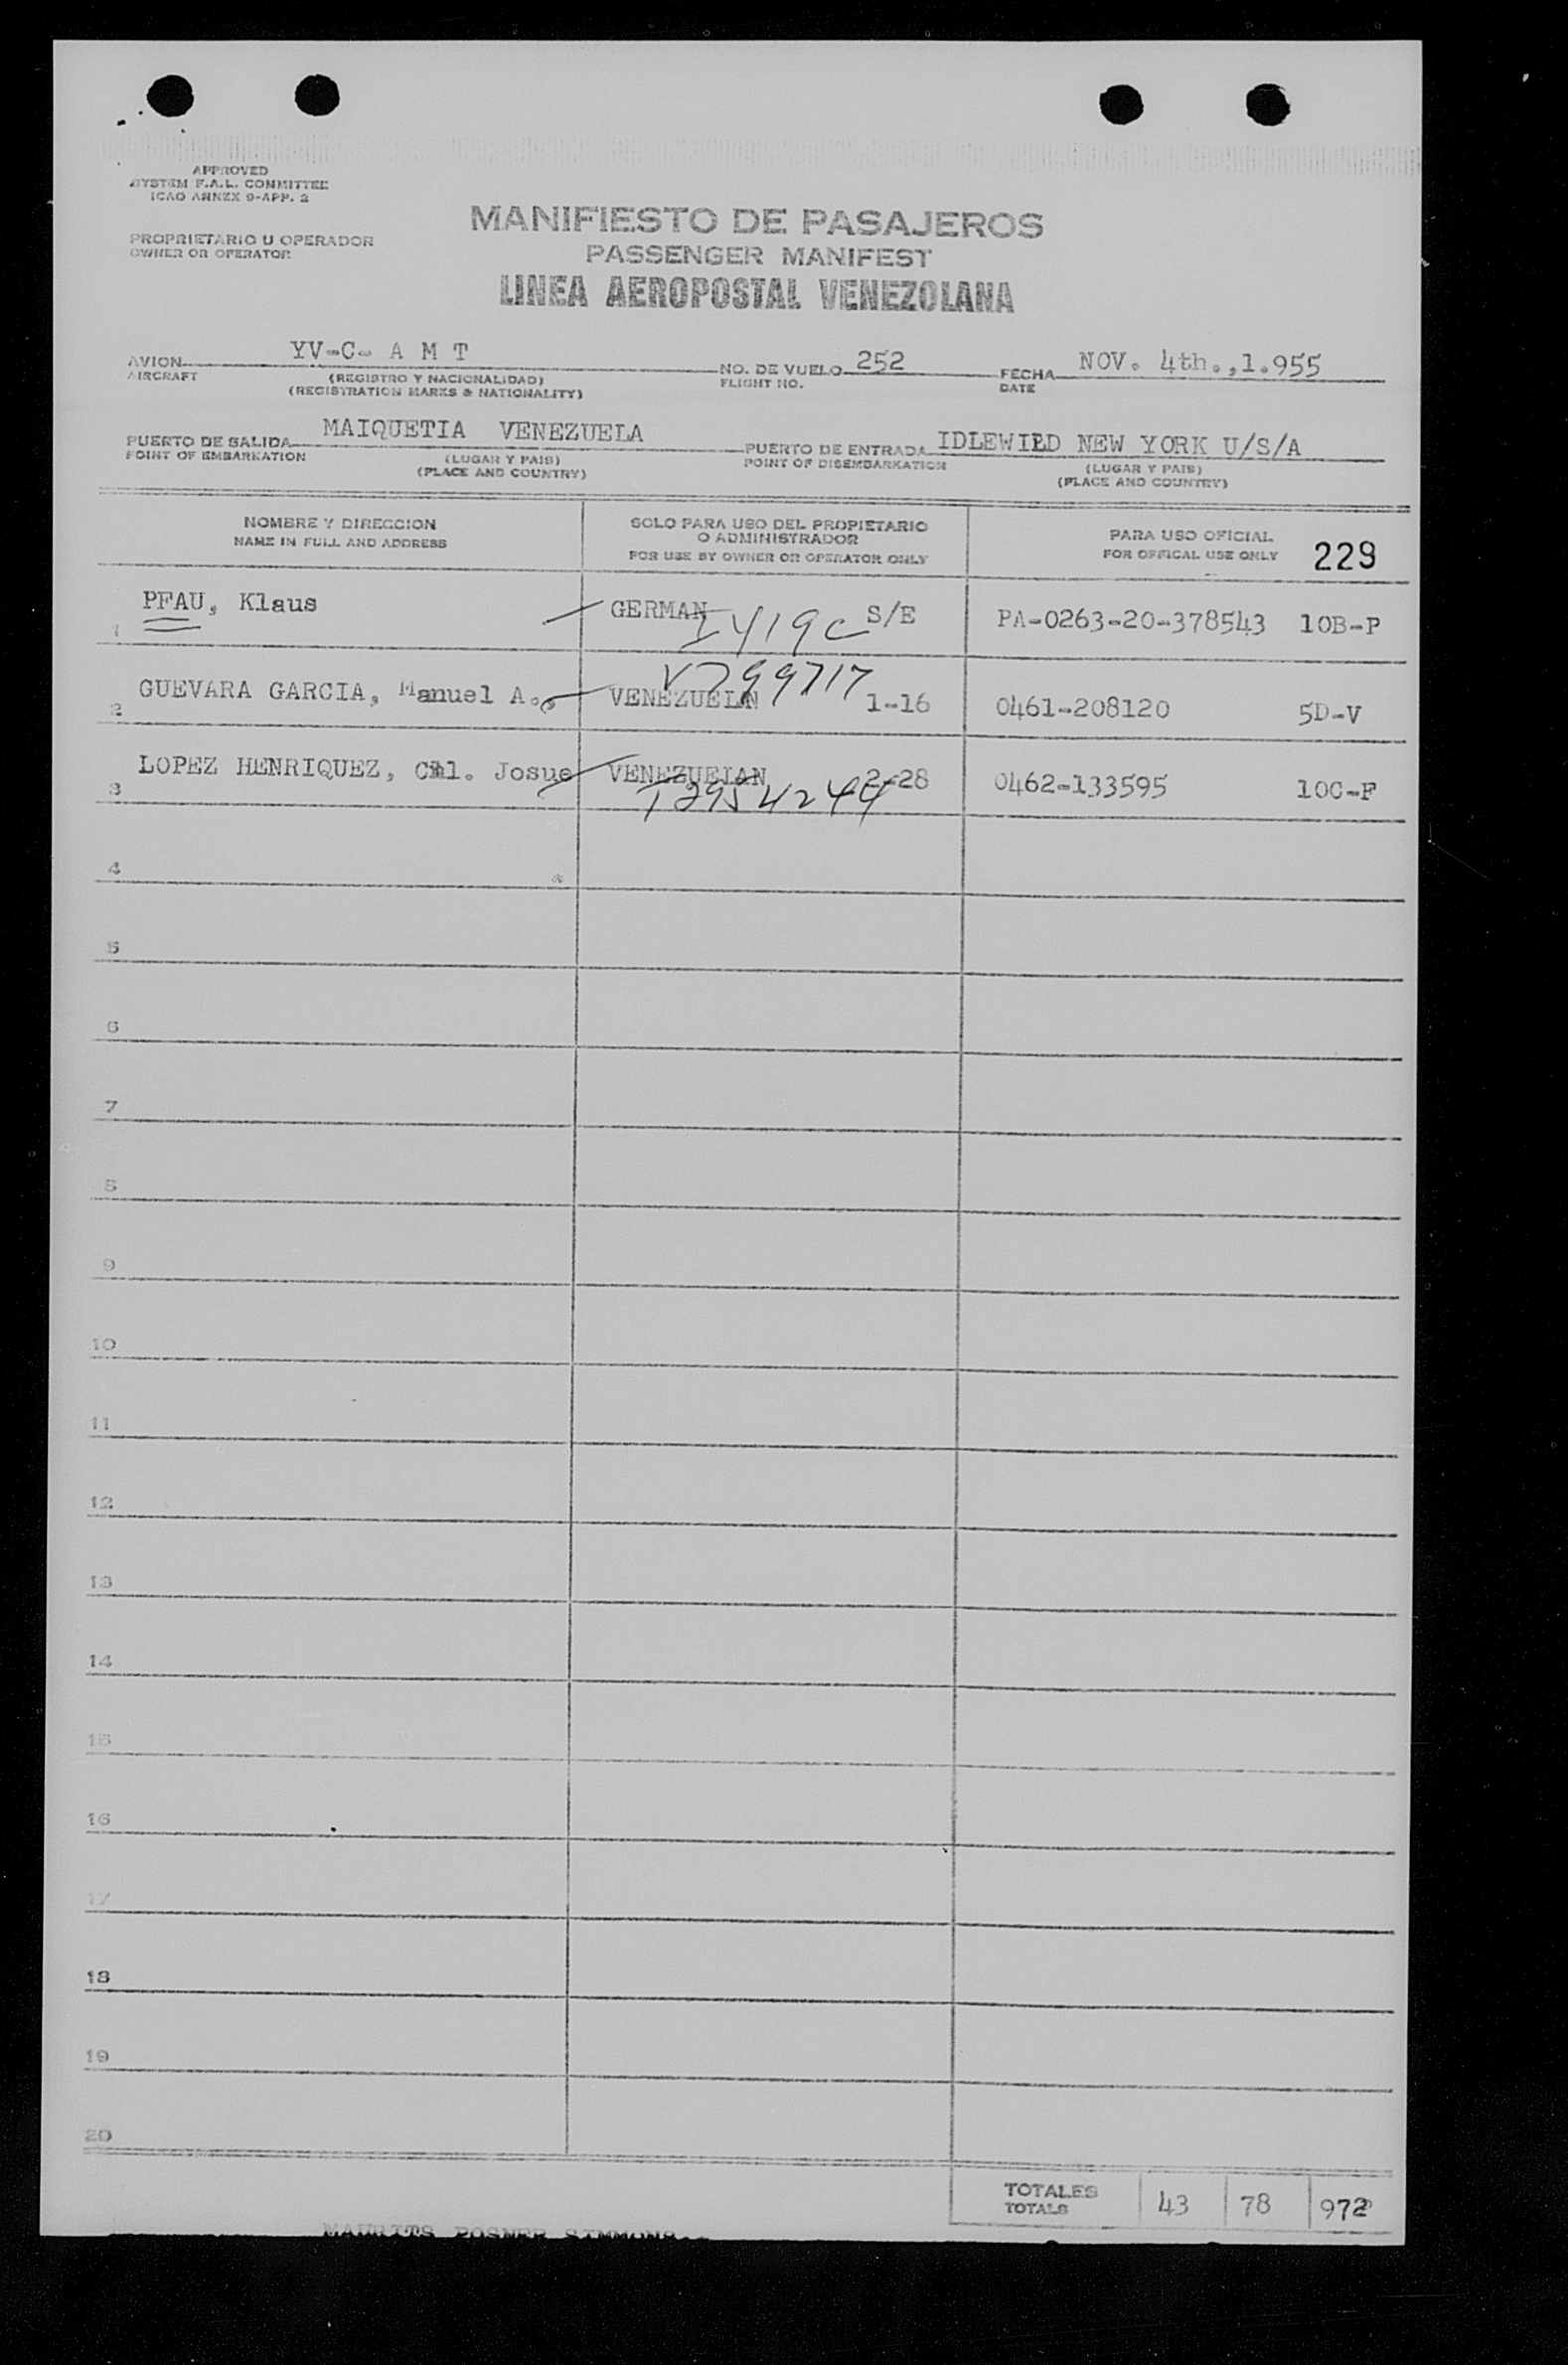 APPROVED
SYSTEM F.A.L. COMMITTEE
ICAO ANNEX 9-APP. 2
PROPRIETARIO U OPERADOR
OWNER OR OPERATOR
MANIFIESTO DE PASAJEROS
PASSENGER MANIFEST
LINEA AEROPOSTAL VENEZOLANA
AVION YV-C- A M T NO. DE VUELO 252 FECHA NOV. 4th.,1.955
AIRCRAFT (REGISTRO Y NACIONALIDAD) FLIGHT NO. DATE
(REGISTRATION MARKS & NATIONALITY)
PUERTO DE SALIDA MAIQUETIA VENEZUELA PUERTO DE ENTRADA IDLEWILD NEW YORK U/S/A
POINT OF EMBARKATION (LUGAR Y PAIS) POINT OF DISEMBARKATION (LUGAR Y PAIS)
(PLACE AND COUNTRY) (PLACE AND COUNTRY)
NOMBRE Y DIRECCION SOLO PARA USO DEL PROPIETARIO PARA USO OFICIAL
NAME IN FULL AND ADDRESS O ADMINISTRADOR FOR OFFICAL USE ONLY 229
FOR USE BY OWNER OR OPERATOR ONLY
1 PFAU, Klaus GERMAN S/E PA-0263-20-378543 10B-P
I419C
V799717
2 GUEVARA GARCIA, Manuel A. 1-16 0461-208120 5D-V
3 LOPEZ HENRIQUEZ, Josue VENEZUELAN 2-28 0462-133595 10C-F
4
5
6
7
8
9
10
11
12
13
14
15
16
17
18
19
20
TOTALES 43 78 972
TOTALS
MAURITS POSNER SIMMONS